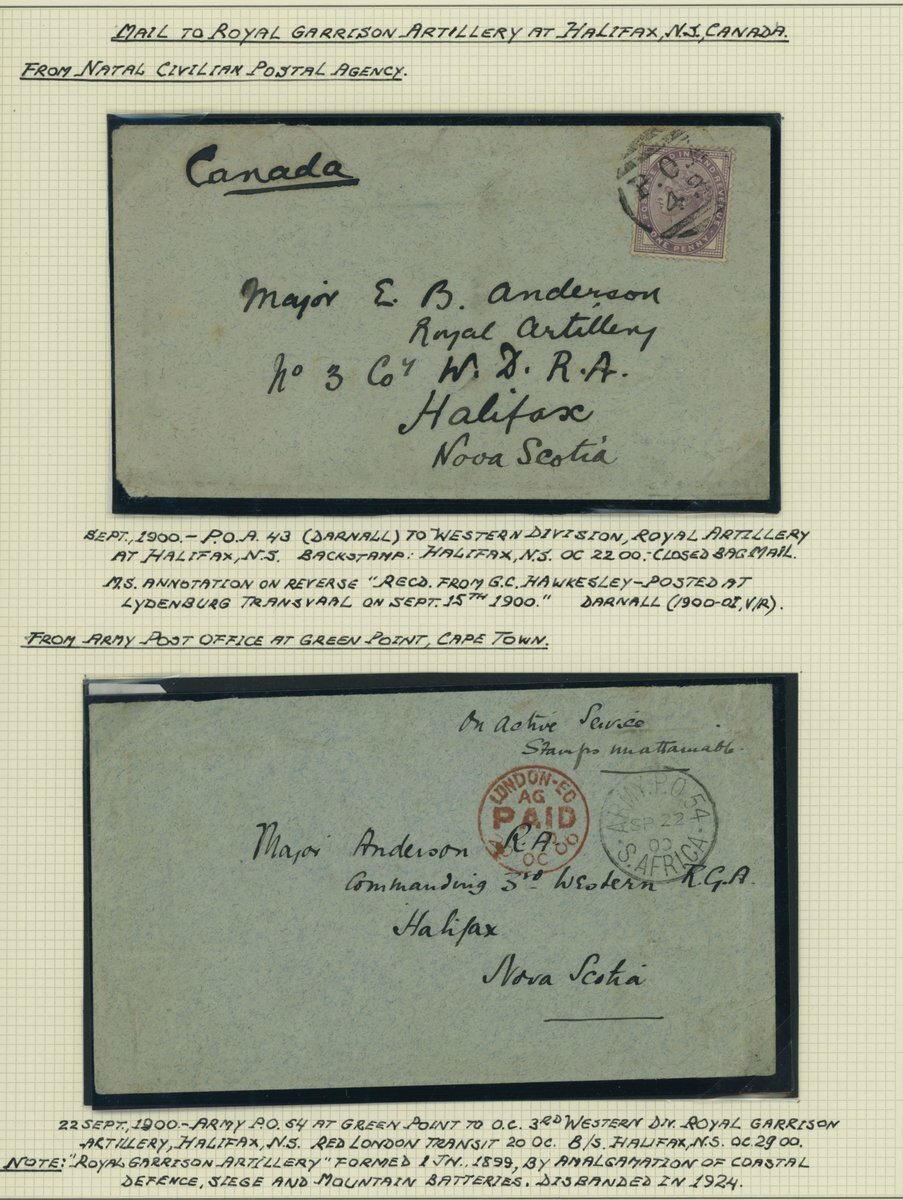 MAIL TO ROYAL GARRISON ARTILLERY AT HALIFAX, N.S., CANADA.
FROM NATAL CIVILIAN POSTAL AGENCY.
Canada
ONE PENNY
Major E. B. Anderson
Royal Artillery
No 3 Coy W. D. R.A.
Halifax
Nova Scotia
SEPT., 1900.- P.O.A. 43 (DARNALL) TO WESTERN DIVISION, ROYAL ARTILLERY
AT HALIFAX, N.S. BACKSTAMP: HALIFAX, N.S. OC 22 00.-CLOSED BAG MAIL.
M.S. ANNOTATION ON REVERSE "RECD. FROM G.C. HAWKESLEY-POSTED AT
LYDENBURG TRANSVAAL ON SEPT. 15TH 1900." DARNALL (1900-01, V/R).
FROM ARMY POST OFFICE AT GREEN POINT, CAPE TOWN.
On Active Service
Stamps unattainable.
LONDON-EC
AG
PAID
OC 00
ARMY.P.O.54
SP 22
00
S. AFRICA
Major Anderson R.A.
Commanding 3rd Western R.G.A.
Halifax
Nova Scotia
22 SEPT., 1900.-ARMY P.O. 54 AT GREEN POINT TO O.C. 3RD WESTERN DIV. ROYAL GARRISON
ARTILLERY, HALIFAX, N.S. RED LONDON TRANSIT 20 OC. B/S. HALIFAX, N.S. OC 29 00.
NOTE: "ROYAL GARRISON ARTILLERY" FORMED 1 JN. 1899, BY AMALGAMATION OF COASTAL
DEFENCE, SIEGE AND MOUNTAIN BATTERIES. DISBANDED IN 1924.